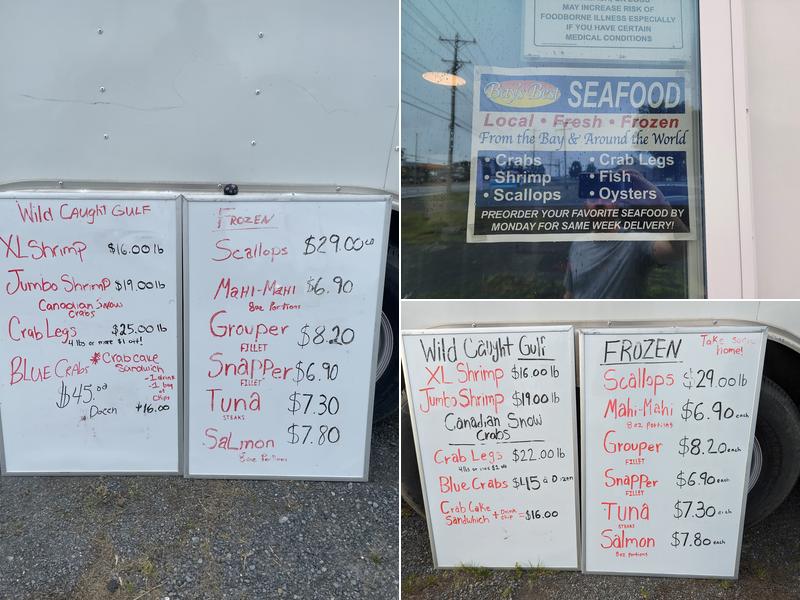 Wild Caught Gulf
XL Shrimp $16.00 lb
Jumbo Shrimp $19.00 lb
Canadian Snow
Crabs
Crab Legs $25.00 lb
4 lbs or more $1 off!
BLUE CRABS
$45.00
Dozen
*Crabcake
Sandwich
-1 drink
-1 bag
of
chips
$16.00
FROZEN
Scallops $29.00 LB
MAHI-MAHI $6.90
8oz Portions
Grouper $8.20
FILLET
Snapper $6.90
FILLET
Tuna $7.30
STEAKS
SaLmon $7.80
8oz Portions
MAY INCREASE RISK OF
FOODBORNE ILLNESS ESPECIALLY
IF YOU HAVE CERTAIN
MEDICAL CONDITIONS
Bay's Best SEAFOOD
Local • Fresh • Frozen
From the Bay & Around the World
• Crabs • Crab Legs
• Shrimp • Fish
• Scallops • Oysters
PREORDER YOUR FAVORITE SEAFOOD BY
MONDAY FOR SAME WEEK DELIVERY!
Wild Caught Gulf
XL Shrimp $16.00 lb
Jumbo Shrimp $19.00 lb
Canadian Snow
Crabs
Crab Legs $22.00 lb
Blue Crabs $45 a Dozen
Crab Cake
Sandwhich + Drink
chip = $16.00
FROZEN
Take some
home!
Scallops $29.00 lb
Mahi-Mahi $6.90 each
8oz portions
Grouper $8.20 each
FILLET
Snapper $6.90 each
FILLET
Tuna $7.30 each
STEAKS
Salmon $7.80 each
8oz portions